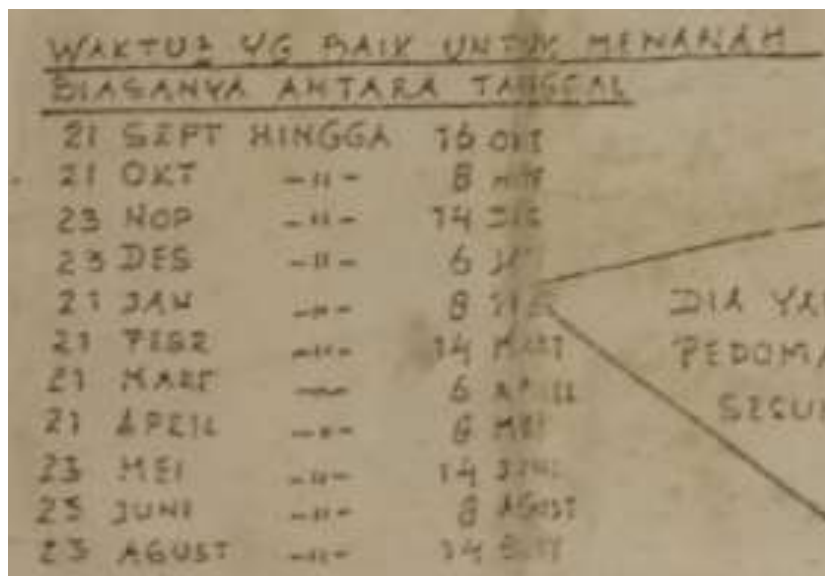 WAKTU2 YG BAIK UNTUK MENANAM
BIASANYA ANTARA TANGGAL
21 SEPT HINGGA 16 OKT
21 OKT -"- 8 NOP
23 NOP -"- 14 DES
23 DES -"- 6 JAN
21 JAN -"- 8
21 FEBR -"- 14 MART
21 MART -"- 6 APRIL
21 APRIL -"- 8 MEI
23 MEI -"- 14 JUNI
23 JUNI -"- 8 AGUST
23 AGUST -"- 14 SEPT
DIA YA
PEDOMA
SEGU